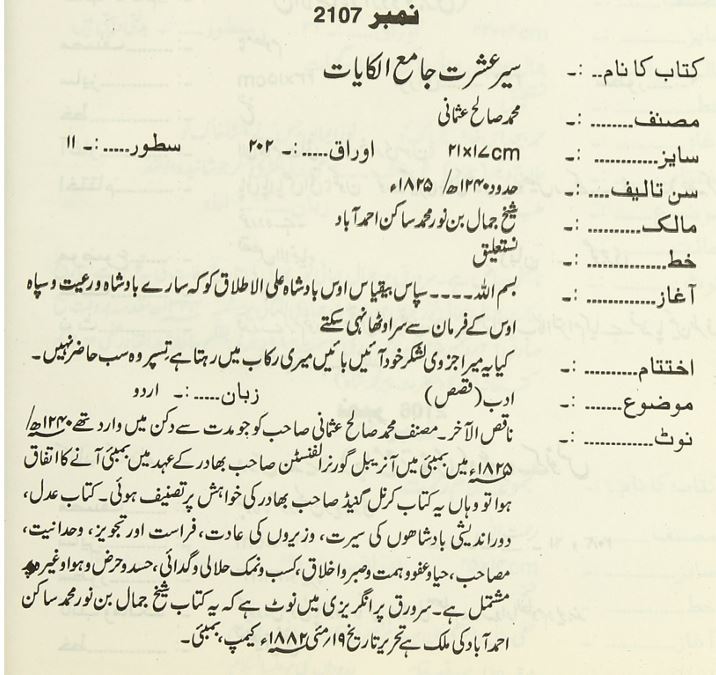 نمبر 2107
کتاب کا نام.. :۔ سیر عشرت جامع الکایات
مصنف........ :۔ محمد صالح عثمانی
سایز........... :۔ ۲۱x۱۷cm اوراق..... :۔ ۲۰۲ سطور..... :۔ ۱۱
سن تالیف.... :۔ حدود ۱۲۴۰ھ/ ۱۸۲۵ء
مالک.......... :۔ شیخ جمال بن نور محمد ساکن احمد آباد
خط............. :۔ نستعلیق
آغاز........... :۔ بسم اللہ۔۔۔۔سپاس بیقیاس اوس بادشاہ علی الاطلاق کو کہ سارے بادشاہ و رعیت و سپاہ
اوس کے فرمان سے سر اوٹھا نہی سکتے
اختتام......... :۔ کیا یہ میرا جزوی لشکر خود آئیں بائیں میری رکاب میں رہتا ہے تسپر وہ سب حاضر نہیں۔
موضوع....... :۔ ادب (قصص) زبان..... :۔ اردو
نوٹ........... :۔ ناقص الآخر۔ مصنف محمد صالح عثمانی صاحب کو جو مدت سے دکن میں وارد تھے ۱۲۴۰ھ/
۱۸۲۵ء میں بمبئی میں آنریبل گورنر الفنسٹن صاحب بہادر کے عہد میں بمبئی آنے کا اتفاق
ہوا تو وہاں یہ کتاب کرنل گنیڈ صاحب بہادر کی خواہش پر تصنیف ہوئی۔ کتاب عدل،
دوراندیشی بادشاھوں کی سیرت، وزیروں کی عادت، فراست اور تجویز، وحدانیت،
مصاحب، حیا و عفو و ہمت و صبر و اخلاق، کسب و نمک حلالی و گدائی، حسد و حرض و ہوا وغیرہ پر
مشتمل ہے۔ سرورق پر انگریزی میں نوٹ ہے کہ یہ کتاب شیخ جمال بن نور محمد ساکن
احمد آباد کی ملک ہے تحریر تاریخ ۱۹/مئی ۱۸۸۲ء کیمپ، بمبئی۔